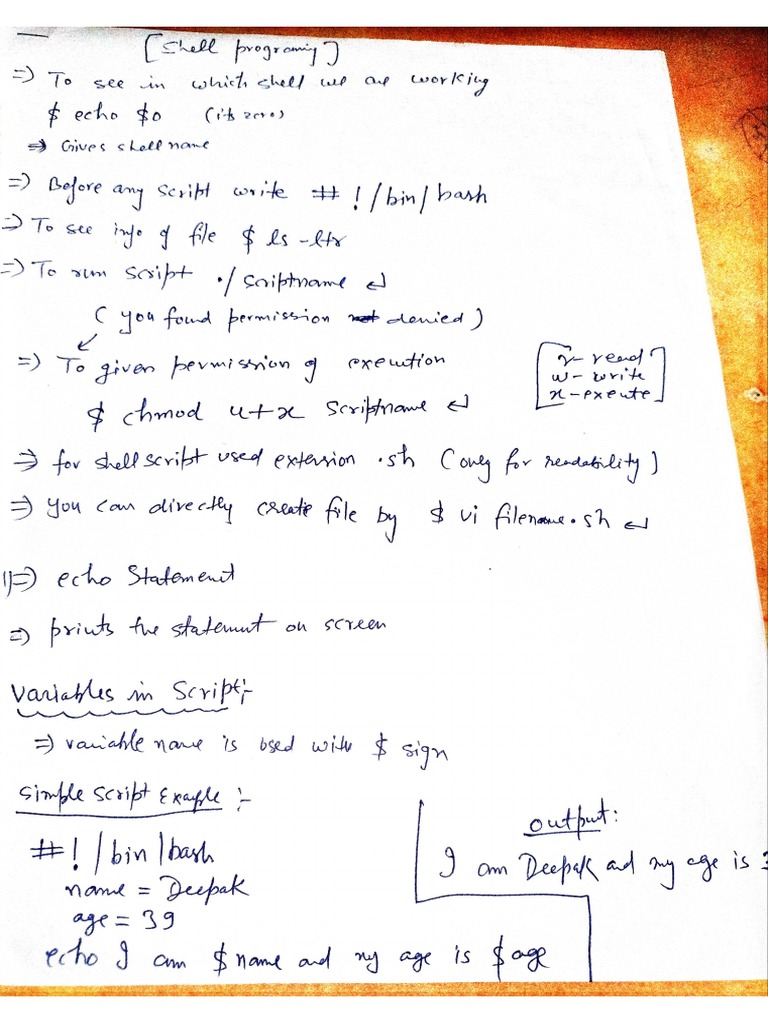 [Shell programing]
=> To see in which shell we are working
$ echo $0 (its zero)
=> Gives shell name
=> Before any script write #!/bin/bash
=> To see info of file $ ls -ltr
=> To run script ./scriptname ↵
( you found permission denied )
=> To given permission of execution
$ chmod u+x scriptname ↵
[r- read
w- write
x- exeute]
=> for shell script used extension .sh (only for readability)
=> you can directly create file by $ vi filename.sh ↵
1) => echo Statement
=> prints the statement on screen
Variables in Script:-
=> variable name is used with $ sign
Simple Script Example :-
#!/bin/bash
name = Deepak
age = 39
echo I am $name and my age is $age
output:
I am Deepak and my age is